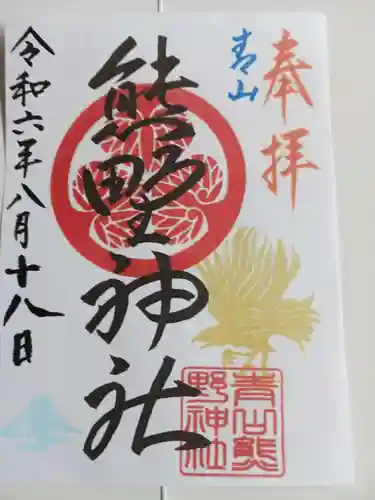 奉拝
青山
熊野神社
令和六年八月十八日
青山熊
野神社